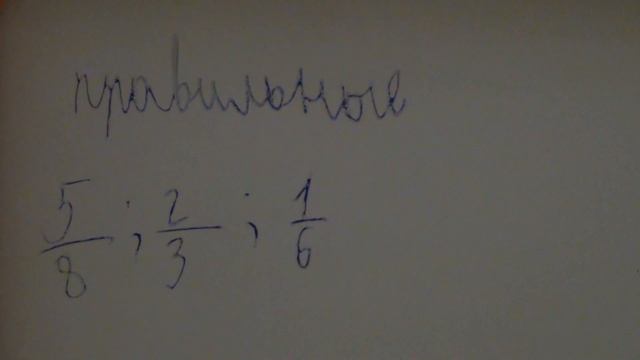 правильные
5/8 ; 2/3 ; 1/6